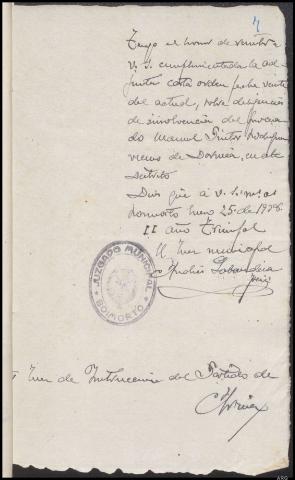 4
Tengo el honor de remitir a
V. S. cumplimentada la ad-
junta carta orden fecha veinte
del actual, sobre diligencias
de insolvencia del
do Manuel Pintor Rodríguez
vecino de Dormeá, en este
Distrito
Dios gue a V. S. m. as
Boimorto Enero 25 de 1938.
II año Triunfal
El Juez municipal
JUZGADO MUNICIPAL
* BOIMORTO *
Juez de Instrucción del Partido de
Arzúa
ARG